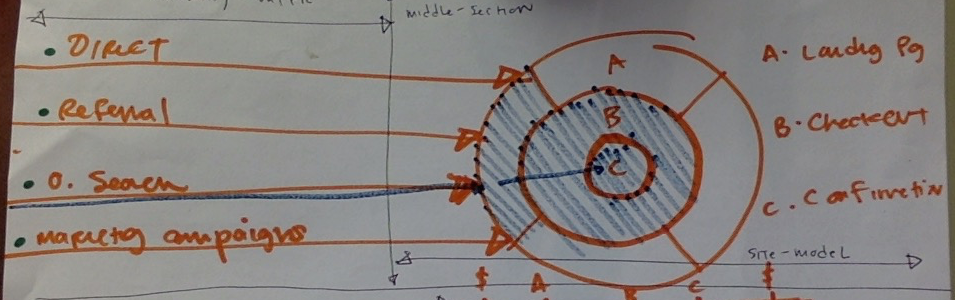 middle-section
• DIRECT
• Referral
• O. Search
• Marketing campaigns
A
B
C
A. Landing Pg
B. Checkout
C. Confirmation
site-model
$ A B C $